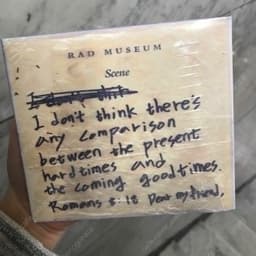 RAD MUSEUM
Scene
I don't think there's
any comparison
between the present
hard times and
the coming good times.
Romans 8:18 Dear my friend,